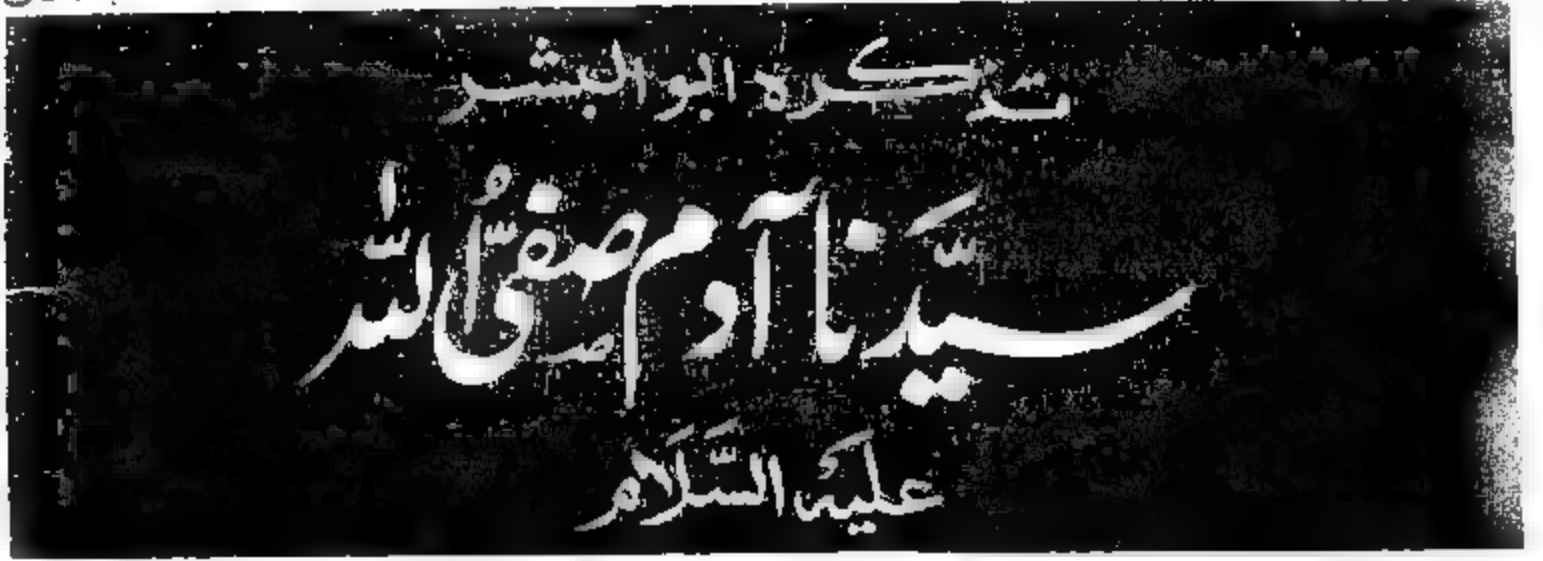 تذکرہ ابو البشر
سیّدنا آدم صفیُّ اللّٰہ
علیہ السَّلَام